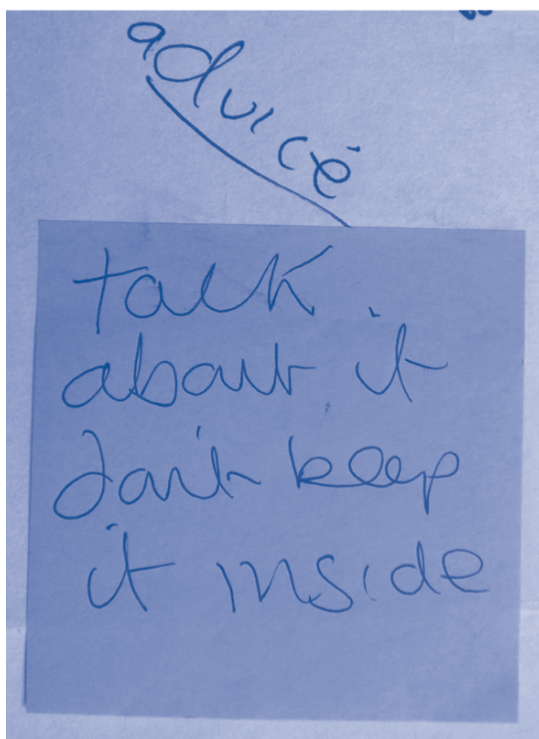 advice
talk.
about it
don't keep
it inside